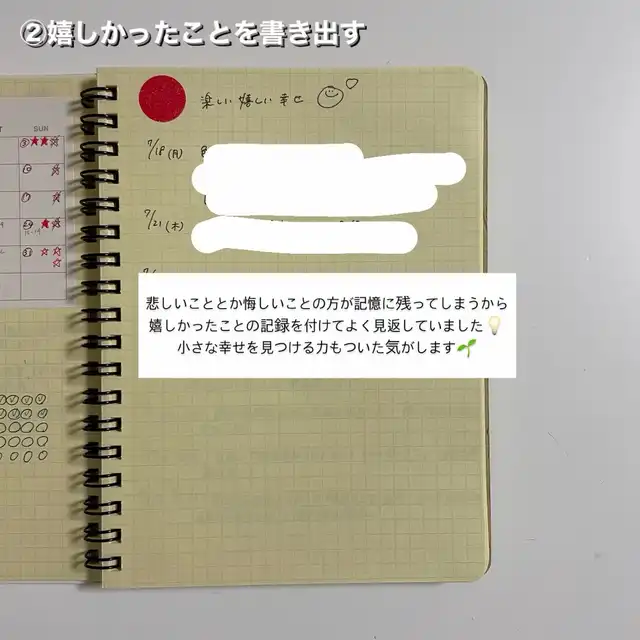 ②嬉しかったことを書き出す
楽しい 嬉しい 幸せ
SUN
7/18(月)
7/21(木)
悲しいこととか悔しいことの方が記憶に残ってしまうから
嬉しかったことの記録を付けてよく見返していました💡
小さな幸せを見つける力もついた気がします🌱